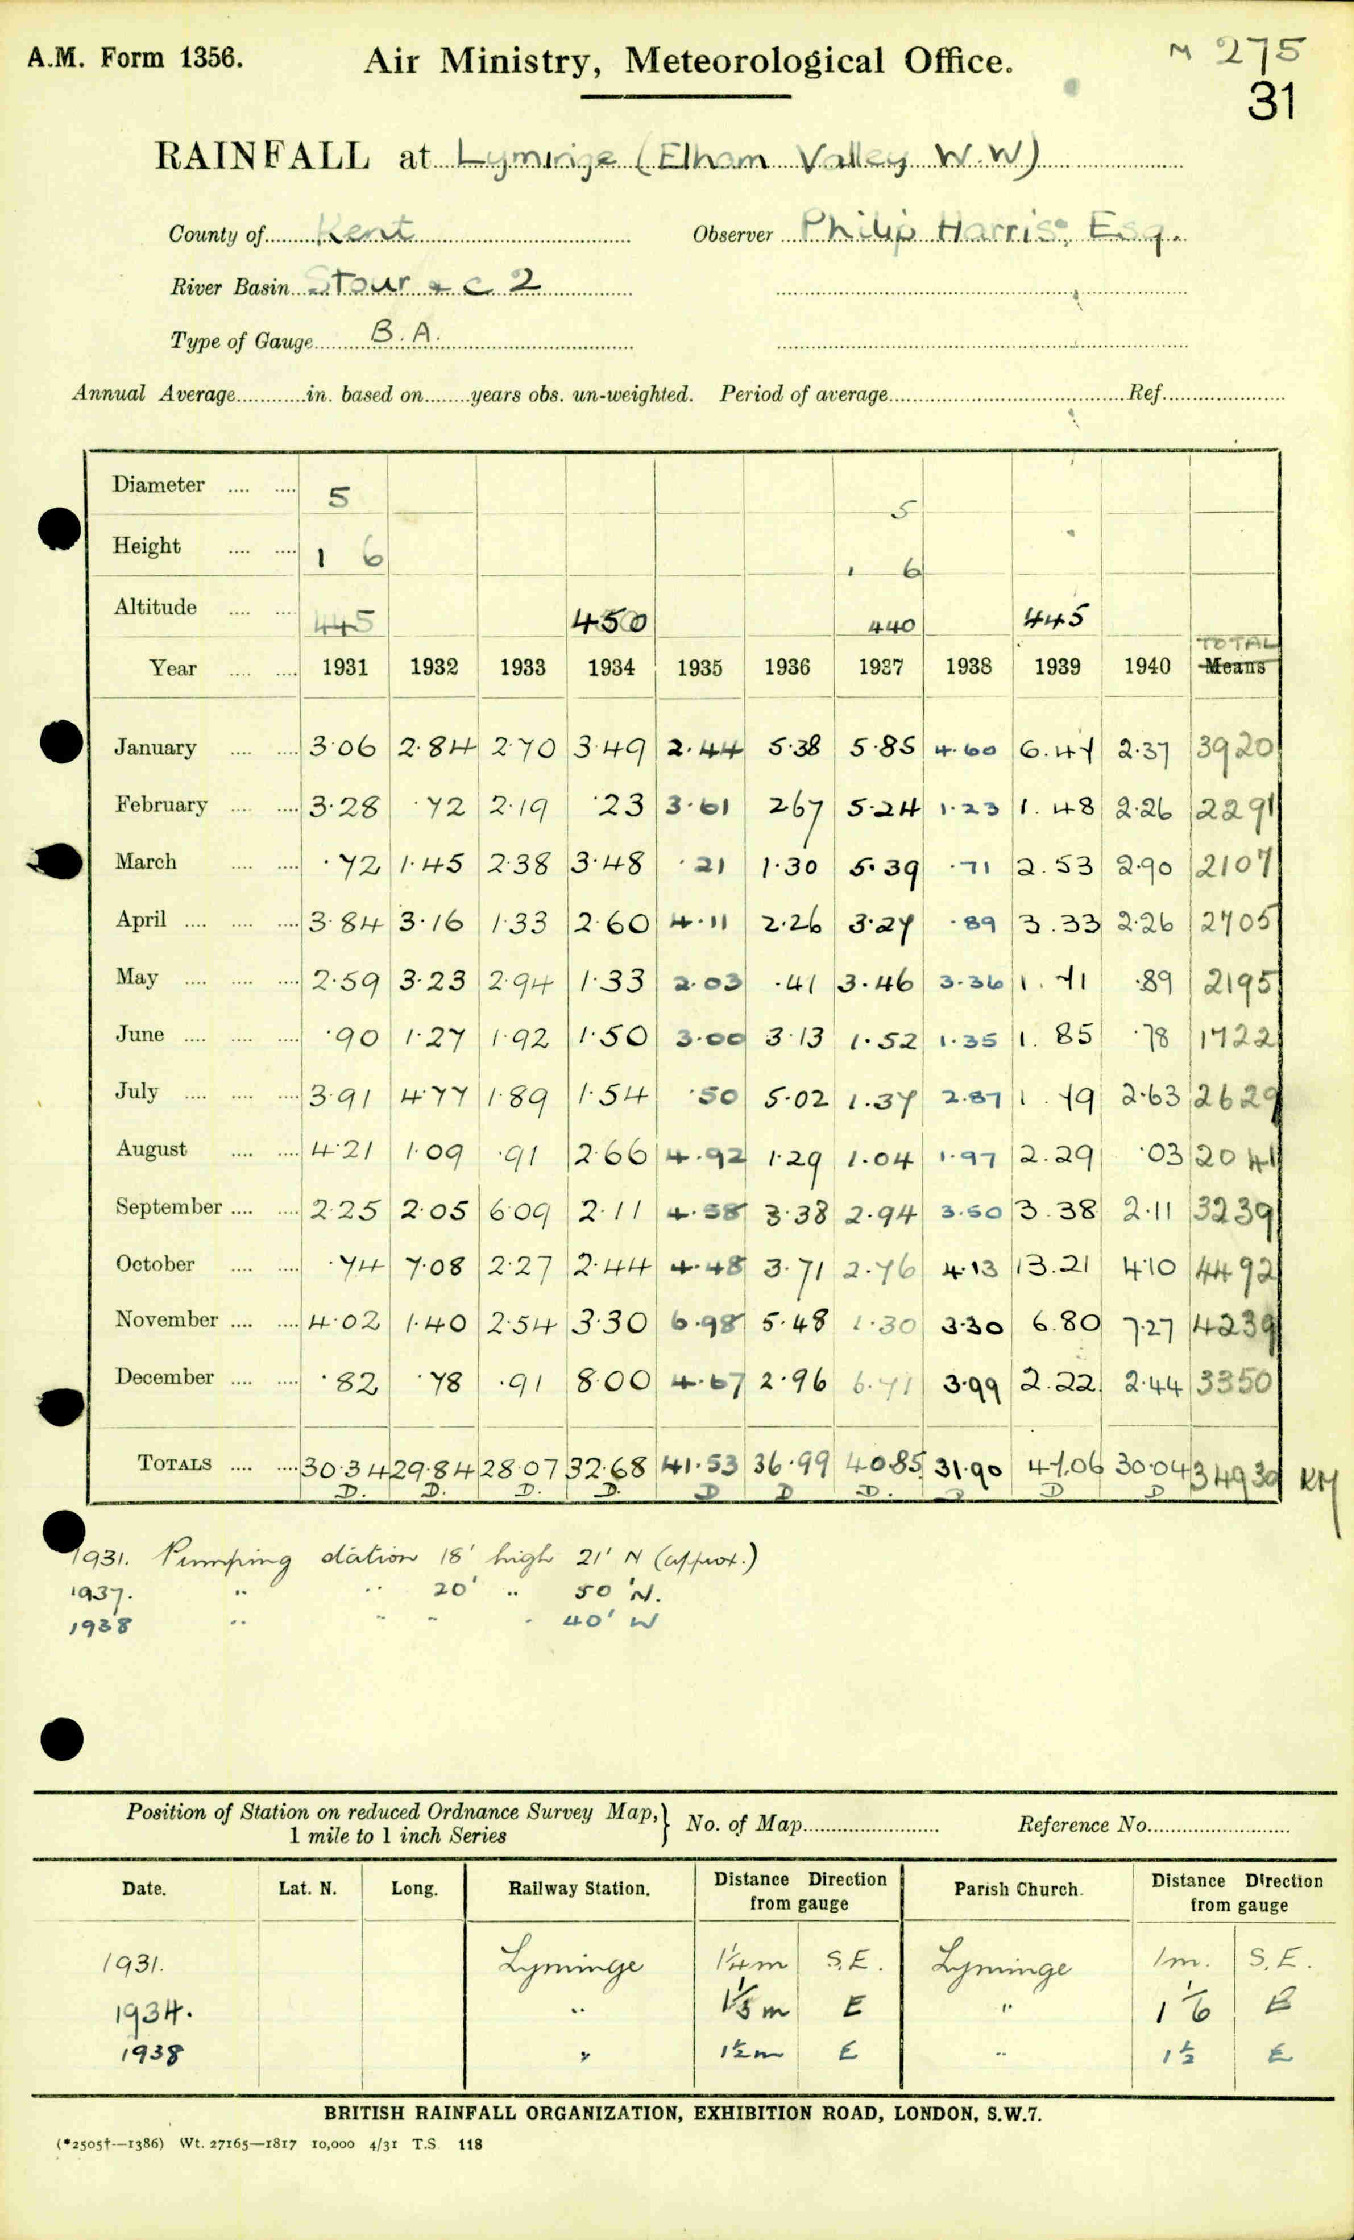 A.M. Form 1356.
Air Ministry, Meteorological Office.
M 275
31
RAINFALL at Lyminge (Elham Valley W.W)
County of Kent Observer Philip Harris, Esq.
River Basin Stour & C 2
Type of Gauge B.A.
Annual Average in. based on years obs. un-weighted. Period of average Ref.
Diameter 5 5
Height 1 6 1 6
Altitude 445 450 440 445
TOTAL
Year 1931 1932 1933 1934 1935 1936 1937 1938 1939 1940 Means
January 3·06 2·84 2·70 3·49 2·44 5·38 5·85 4·60 6.47 2·37 3920
February 3·28 ·72 2·19 ·23 3·61 267 5·24 1·23 1.48 2·26 2291
March ·72 1·45 2·38 3·48 ·21 1·30 5·39 ·71 2.53 2·90 2107
April 3·84 3·16 1·33 2·60 4·11 2·26 3·27 ·89 3.33 2·26 2705
May 2·59 3·23 2·94 1·33 2·03 ·41 3·46 3·36 1.71 ·89 2195
June ·90 1·27 1·92 1·50 3·00 3·13 1·52 1·35 1.85 ·78 1722
July 3·91 4·77 1·89 1·54 ·50 5·02 1·37 2·87 1.79 2·63 2629
August 4·21 1·09 ·91 2·66 4·92 1·29 1·04 1·97 2.29 ·03 2041
September 2·25 2·05 6·09 2·11 4·58 3·38 2·94 3·50 3.38 2·11 3239
October ·74 7·08 2·27 2·44 4·48 3·71 2·76 4·13 13.21 4·10 4492
November 4·02 1·40 2·54 3·30 6·98 5·48 1·30 3·30 6.80 7·27 4239
December ·82 ·78 ·91 8·00 4·67 2·96 6·71 3·99 2.22 2·44 3350
TOTALS 30·34 29·84 28·07 32·68 41·53 36·99 40·85 31·90 47.06 30·04 34930 KM
D. D. D. D. D D D. D D D
1931. Pumping station 18' high 21' N (approx.)
1937. " " 20' " 50' N.
1938 " " " " 40' W
Position of Station on reduced Ordnance Survey Map, } No. of Map Reference No.
1 mile to 1 inch Series
Date. Lat. N. Long. Railway Station. Distance Direction from gauge Parish Church. Distance Direction from gauge
1931. Lyminge 1¼m S.E. Lyminge 1m. S.E.
1934. " 1⅓m E " 1⅙ E
1938 " 1½m E " 1½ E
BRITISH RAINFALL ORGANIZATION, EXHIBITION ROAD, LONDON, S.W.7.
(*2505†—1386) Wt. 27165—1817 10,000 4/31 T.S 118